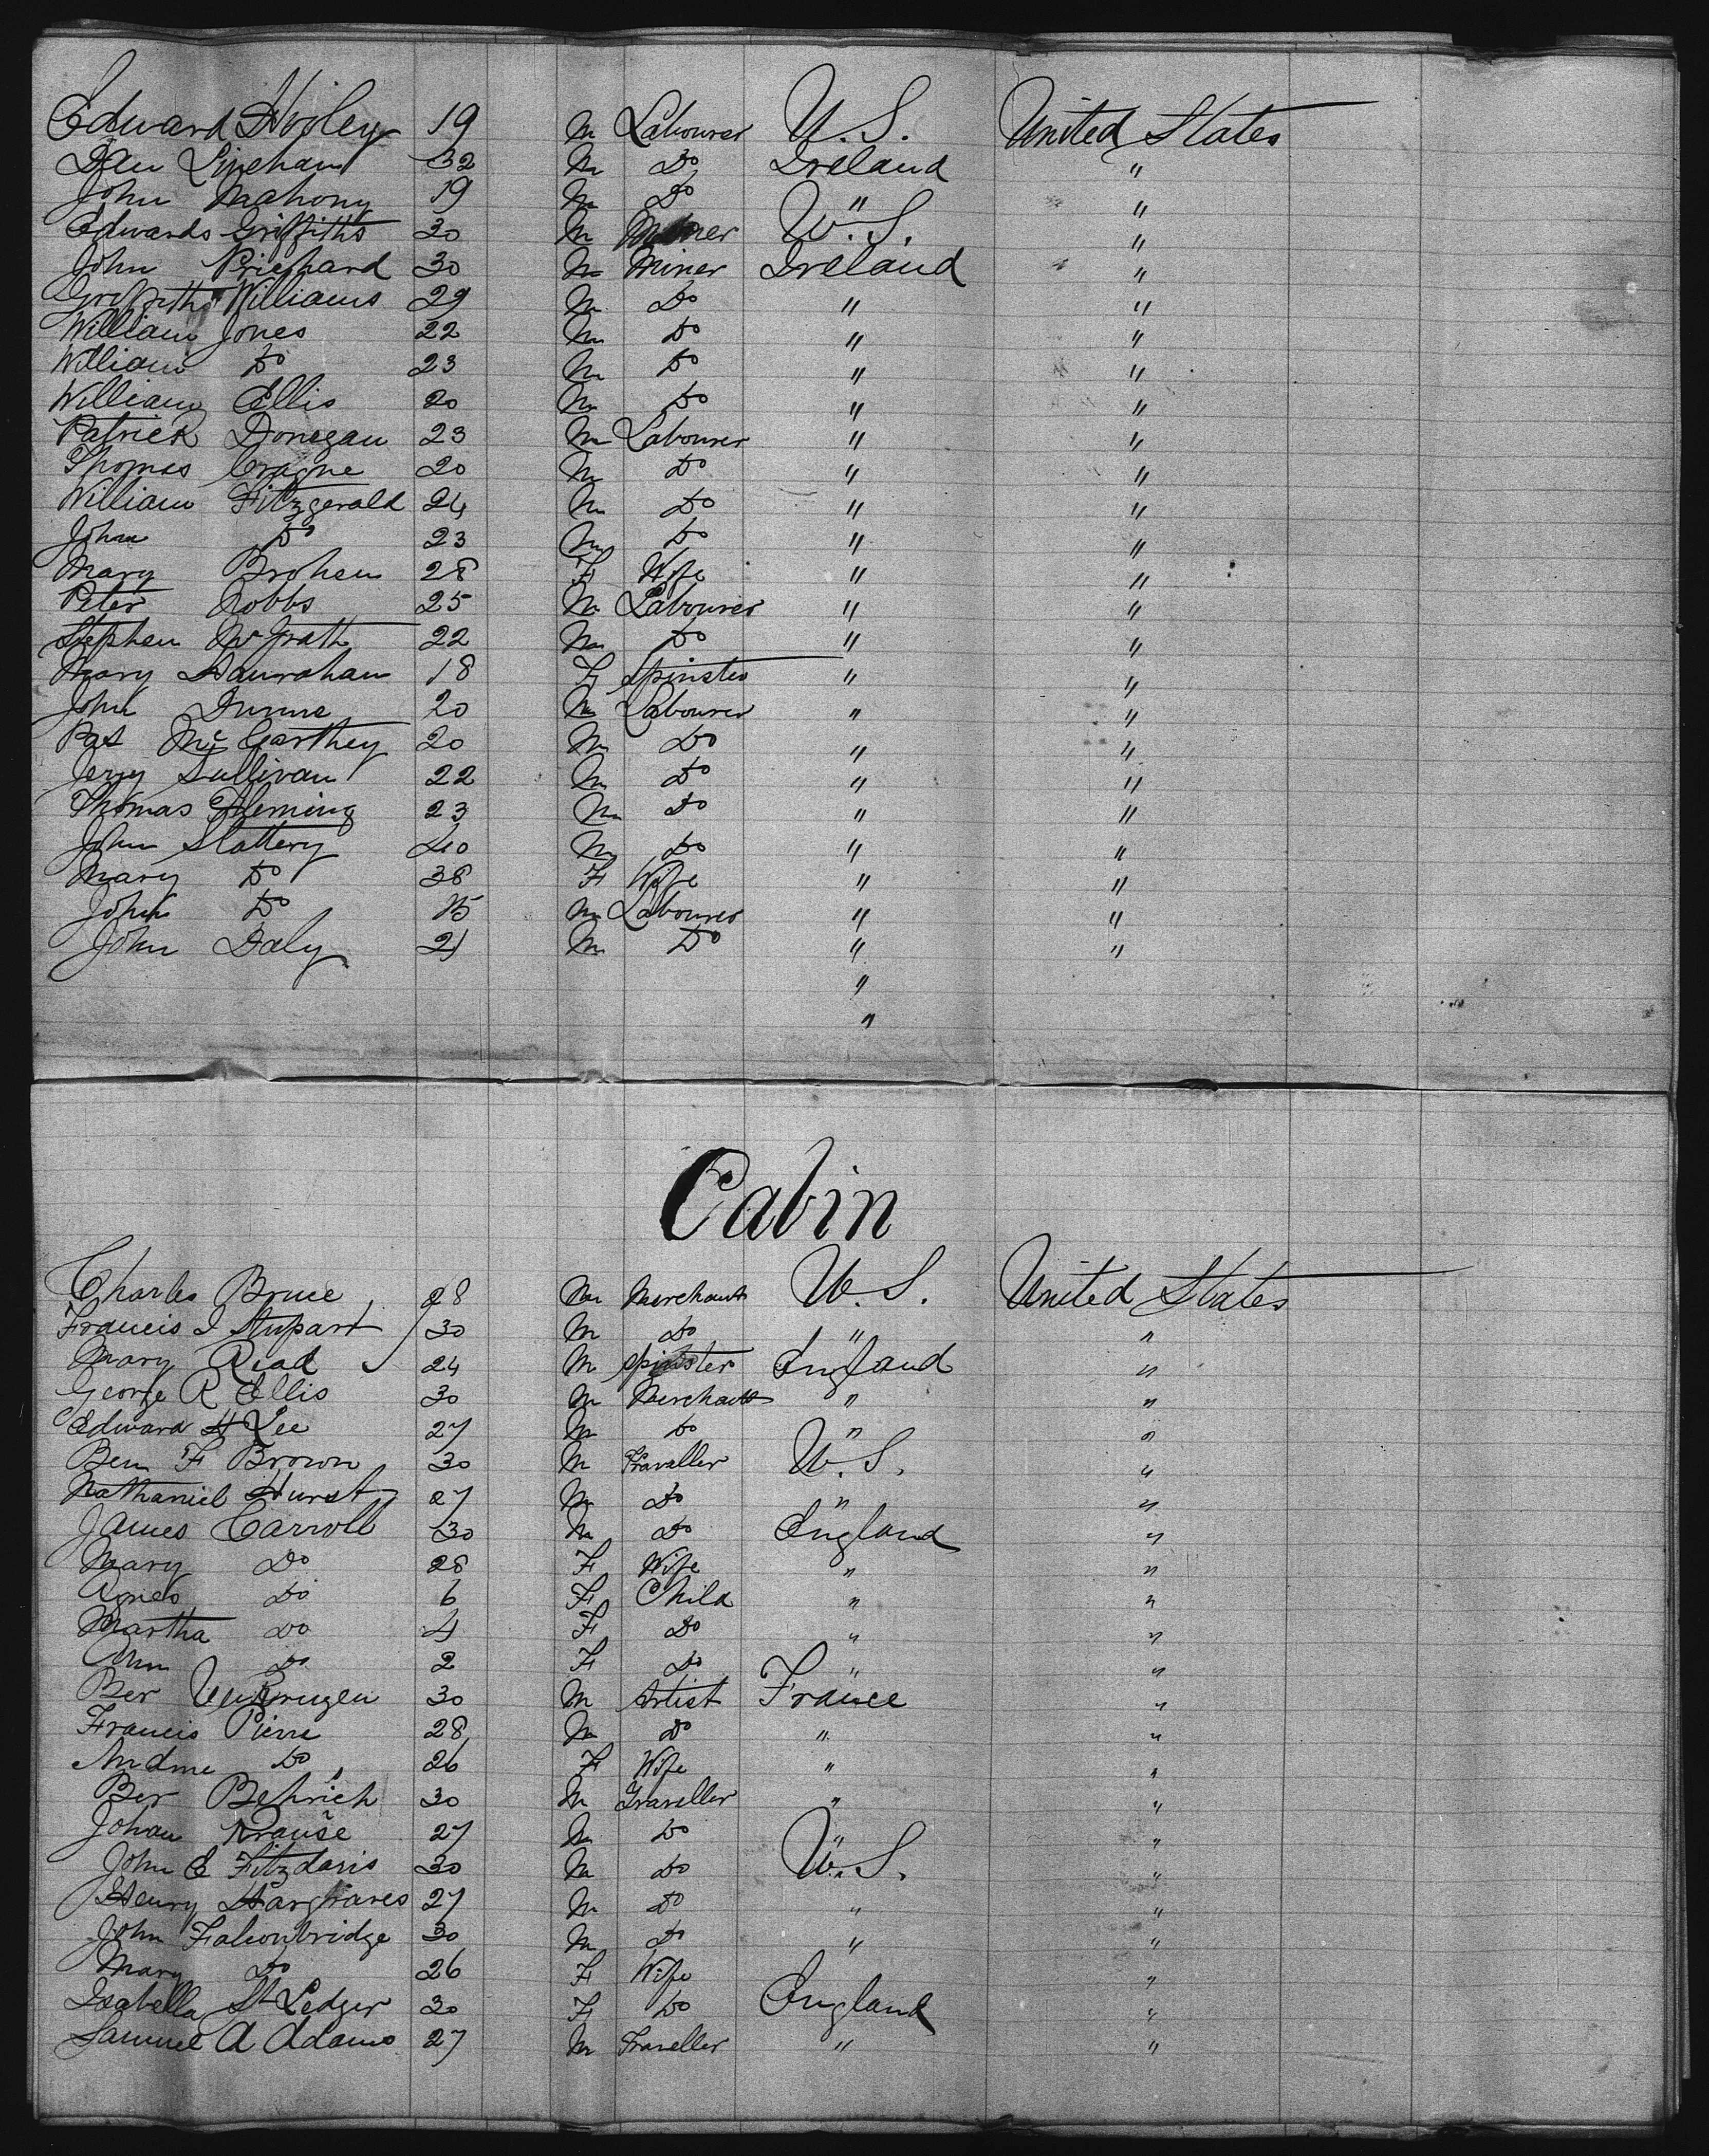 Edward Hogley 19 M Labourer U.S. United States
Dan Linehan 32 M Do Ireland "
John Mahony 19 M Do " "
Edwards Griffiths 30 M Miner U.S. "
John Prichard 30 M Miner Ireland "
Griffiths Williams 29 M Do " "
William Jones 22 M Do " "
William Do 23 M Do " "
William Ellis 20 M Do " "
Patrick Donegan 23 M Labourer " "
Thomas 20 M Do " "
William Fitzgerald 24 M Do " "
John Do 23 M Do " "
Mary Brohen 28 F Wife " "
Peter Robbs 25 M Labourer " "
Stephen McGrath 22 M Do " "
Mary Hanrahan 18 F Spinster " "
John Dunne 20 M Labourer " "
Pat Mc Carthey 20 M Do " "
Jerry Sullivan 22 M Do " "
Thomas Fleming 23 M Do " "
John Slattery 40 M Do " "
Mary Do 38 F Wife " "
John Do 15 M Labourer " "
John Daly 21 M Do " "
"
"
Cabin
Charles Bruce 28 M Merchant U.S. United States
Francis I Stupart 30 M Do " "
Mary Read 24 M Spinster England "
George R Ellis 30 M Merchant " "
Edward H Lee 27 M Do " "
Ben F Brown 30 M Traveller U.S. "
Nathaniel Hurst 27 M Do " "
James Carroll 30 M Do England "
Mary Do 28 F Wife " "
Agnes Do 6 F Child " "
Martha Do 4 F Do " "
Ann Do 2 F Do " "
Ber 30 M Artist France "
Francis Pierre 28 M Do " "
Mdme Do 26 F Wife " "
Ber Behrich 30 M Traveller " "
Johan Krause 27 M Do " "
John E Fitzdavis 30 M Do U.S. "
Henry Hargraves 27 M Do " "
John Falconbridge 30 M Do " "
Mary Do 26 F Wife "
Isabella St Ledger 30 F Do England "
Samuel A Adams 27 M Traveller " "